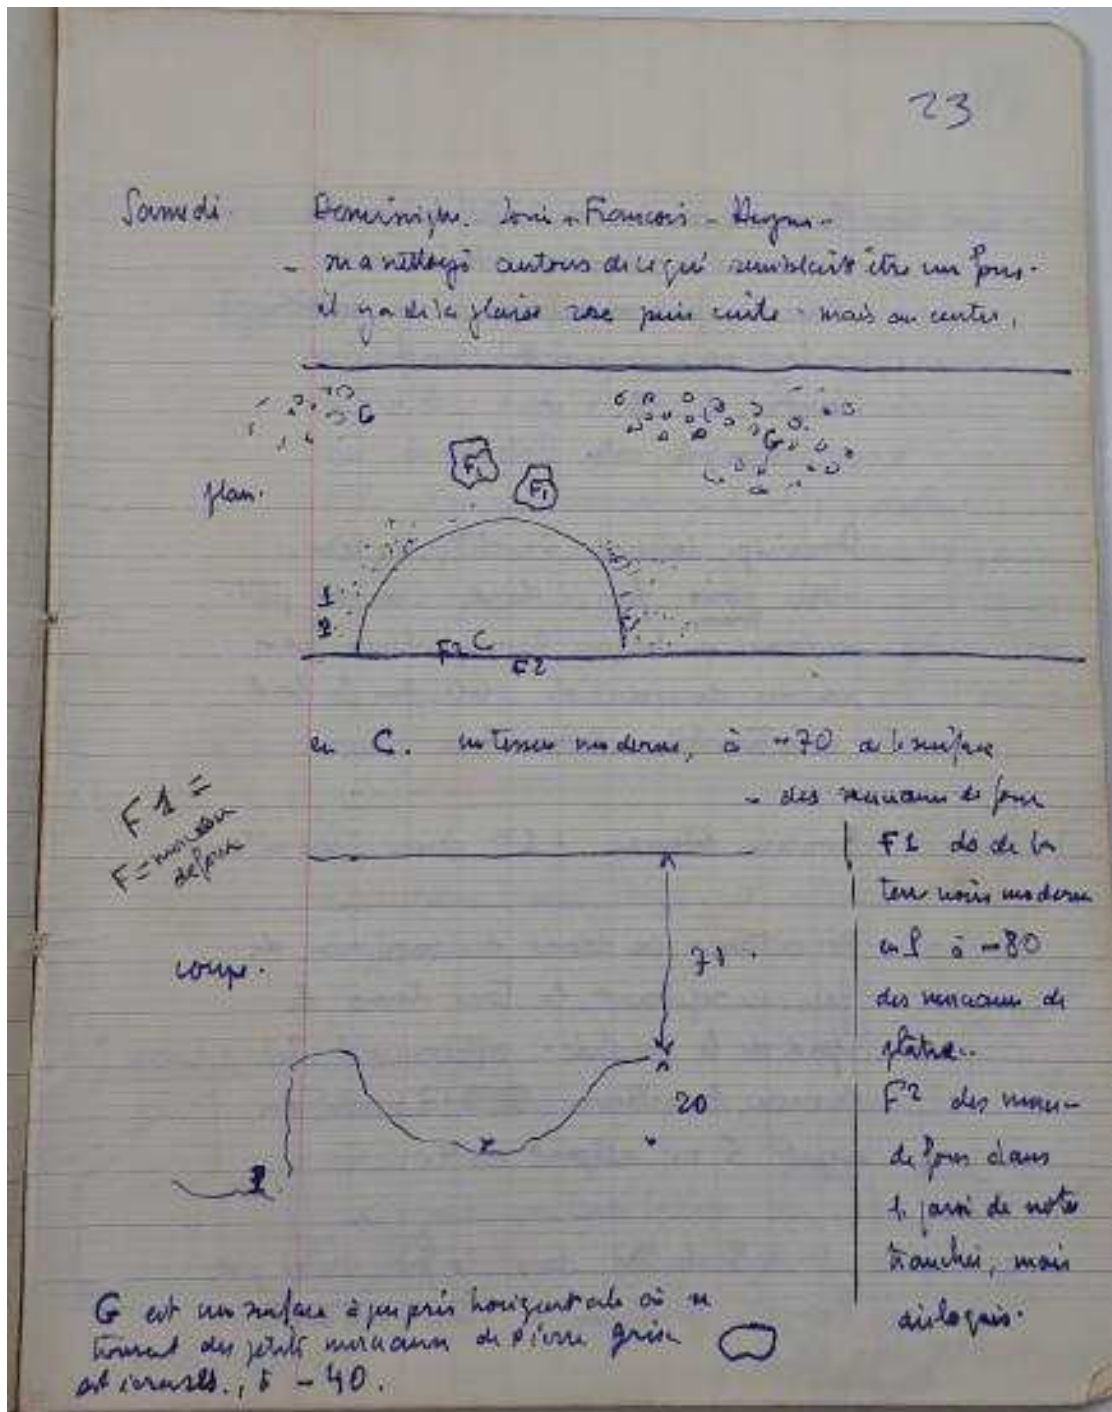 23
Samedi Dominique. Louis - François - Hugues -
- on a nettoyé autour de ce qui semblait être un four.
il y a de la glaise rose puis cuite - mais au centre,
G
G
F1
F1
plan.
1
2
F2 C
F2
en C. un tesson moderne, à -70 de la surface
- des morceaux de four
F1 =
F = morceau
de four
F1 ds de la
terre noire moderne
en 1 à -80
des morceaux de
plâtre.
F2 des morceaux
de four dans
la paroi de notre
tranchée, mais
disloqués.
coupe.
20
G est une surface à peu près horizontale où se
trouvent des petits morceaux de pierre grise
et , à -40.